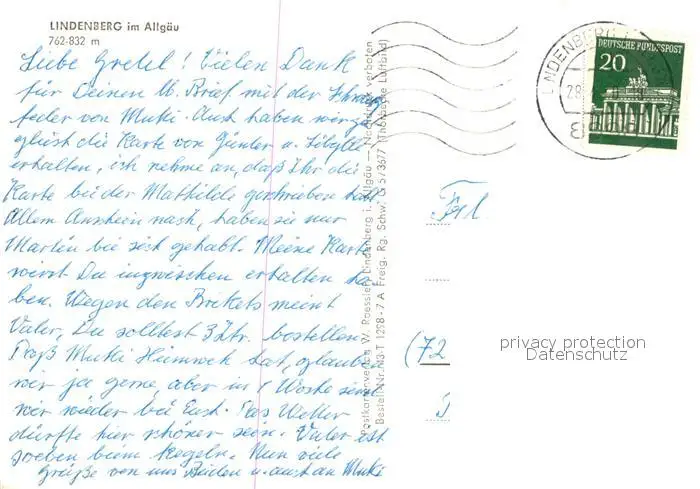 LINDENBERG im Allgäu
762-832 m
Liebe Gretel! Vielen Dank
für Deinen lb. Brief mit der
von Muki. Auch haben wir
die Karte von Günter u. Sibylle
erhalten, ich nehme an, daß Ihr die
Karte bei der Mathilde geschrieben habt
Allem Anschein nach, haben sie nur
Martin bei sich gehabt. Meine Karte
wirst Du inzwischen erhalten ha-
ben. Wegen den Brikets meint
Vater, Du solltest 3 Ztr. bestellen.
Daß Muki Heimweh hat, glauben
wir ja gerne, aber in 1 Woche sind
wir wieder bei Euch. Das Wetter
dürfte hier schöner sein. Vater ist
soeben beim Kegeln. Nun viele
Grüße von uns Beiden u. auch an Muki
Postkartenverlag W. Roessler, Lindenberg i. Allgäu — Nachdruck verboten
Bestell Nr. N3-T 1298-7 A Freig. Rg. Schw. G 5/3677 (Thorbecke Luftbild)
LINDENBERG
28.
DEUTSCHE BUNDESPOST
20
(72
privacy protection
Datenschutz